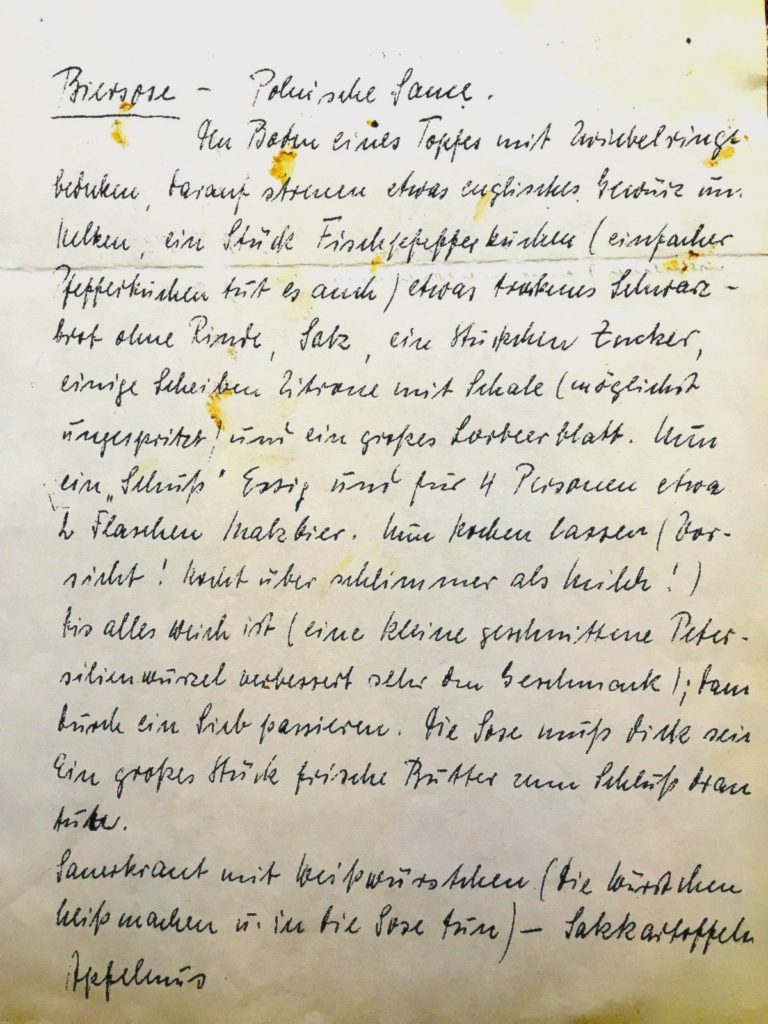 Biersose – Polnische Sauce.
Den Boden eines Topfes mit Zwiebelringe
bedecken, darauf streuen etwas englisches Gewürz un.
Nelken, ein Stück Fischpfefferkuchen (einfacher
Pfefferkuchen tut es auch) etwas trockenes Schwarz-
brot ohne Rinde, Salz, ein Stückchen Zucker,
einige Scheiben Zitrone mit Schale (möglichst
ungespritzt) und ein großes Lorbeerblatt. Nun
ein „Schuß" Essig und für 4 Personen etwa
2 Flaschen Malzbier. Nun kochen lassen (Vor-
sicht! Kocht über schlimmer als Milch!)
bis alles weich ist (eine kleine geschnittene Peter-
silienwurzel verbessert sehr den Geschmack); dann
durch ein Sieb passieren. Die Sose muß dick sein
Ein großes Stück frische Butter zum Schluß dran
tun.
Sauerkraut mit Weißwürstchen (die Würstchen
heiß machen u. in die Sose tun) – Salzkartoffeln
Apfelmus